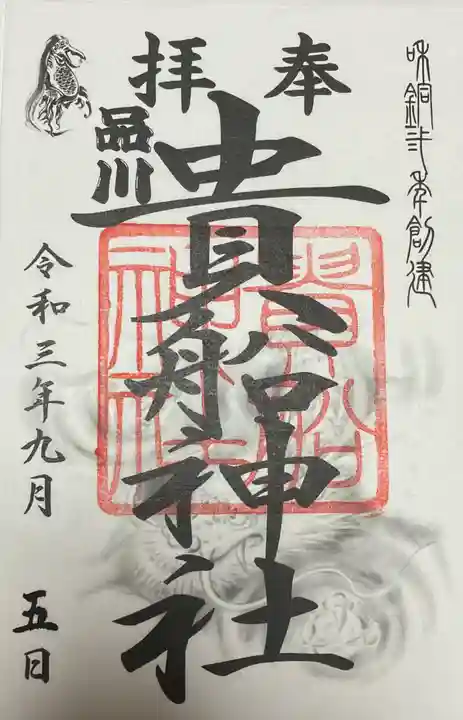 和銅弍年創建
奉拝
品川
貴船神社
貴船
神社
令和三年九月
五日